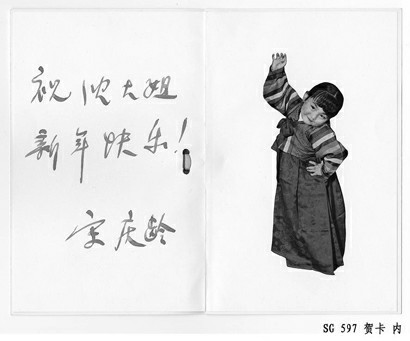 祝沈大姐
新年快乐!
宋庆龄
SG 597 贺卡 内